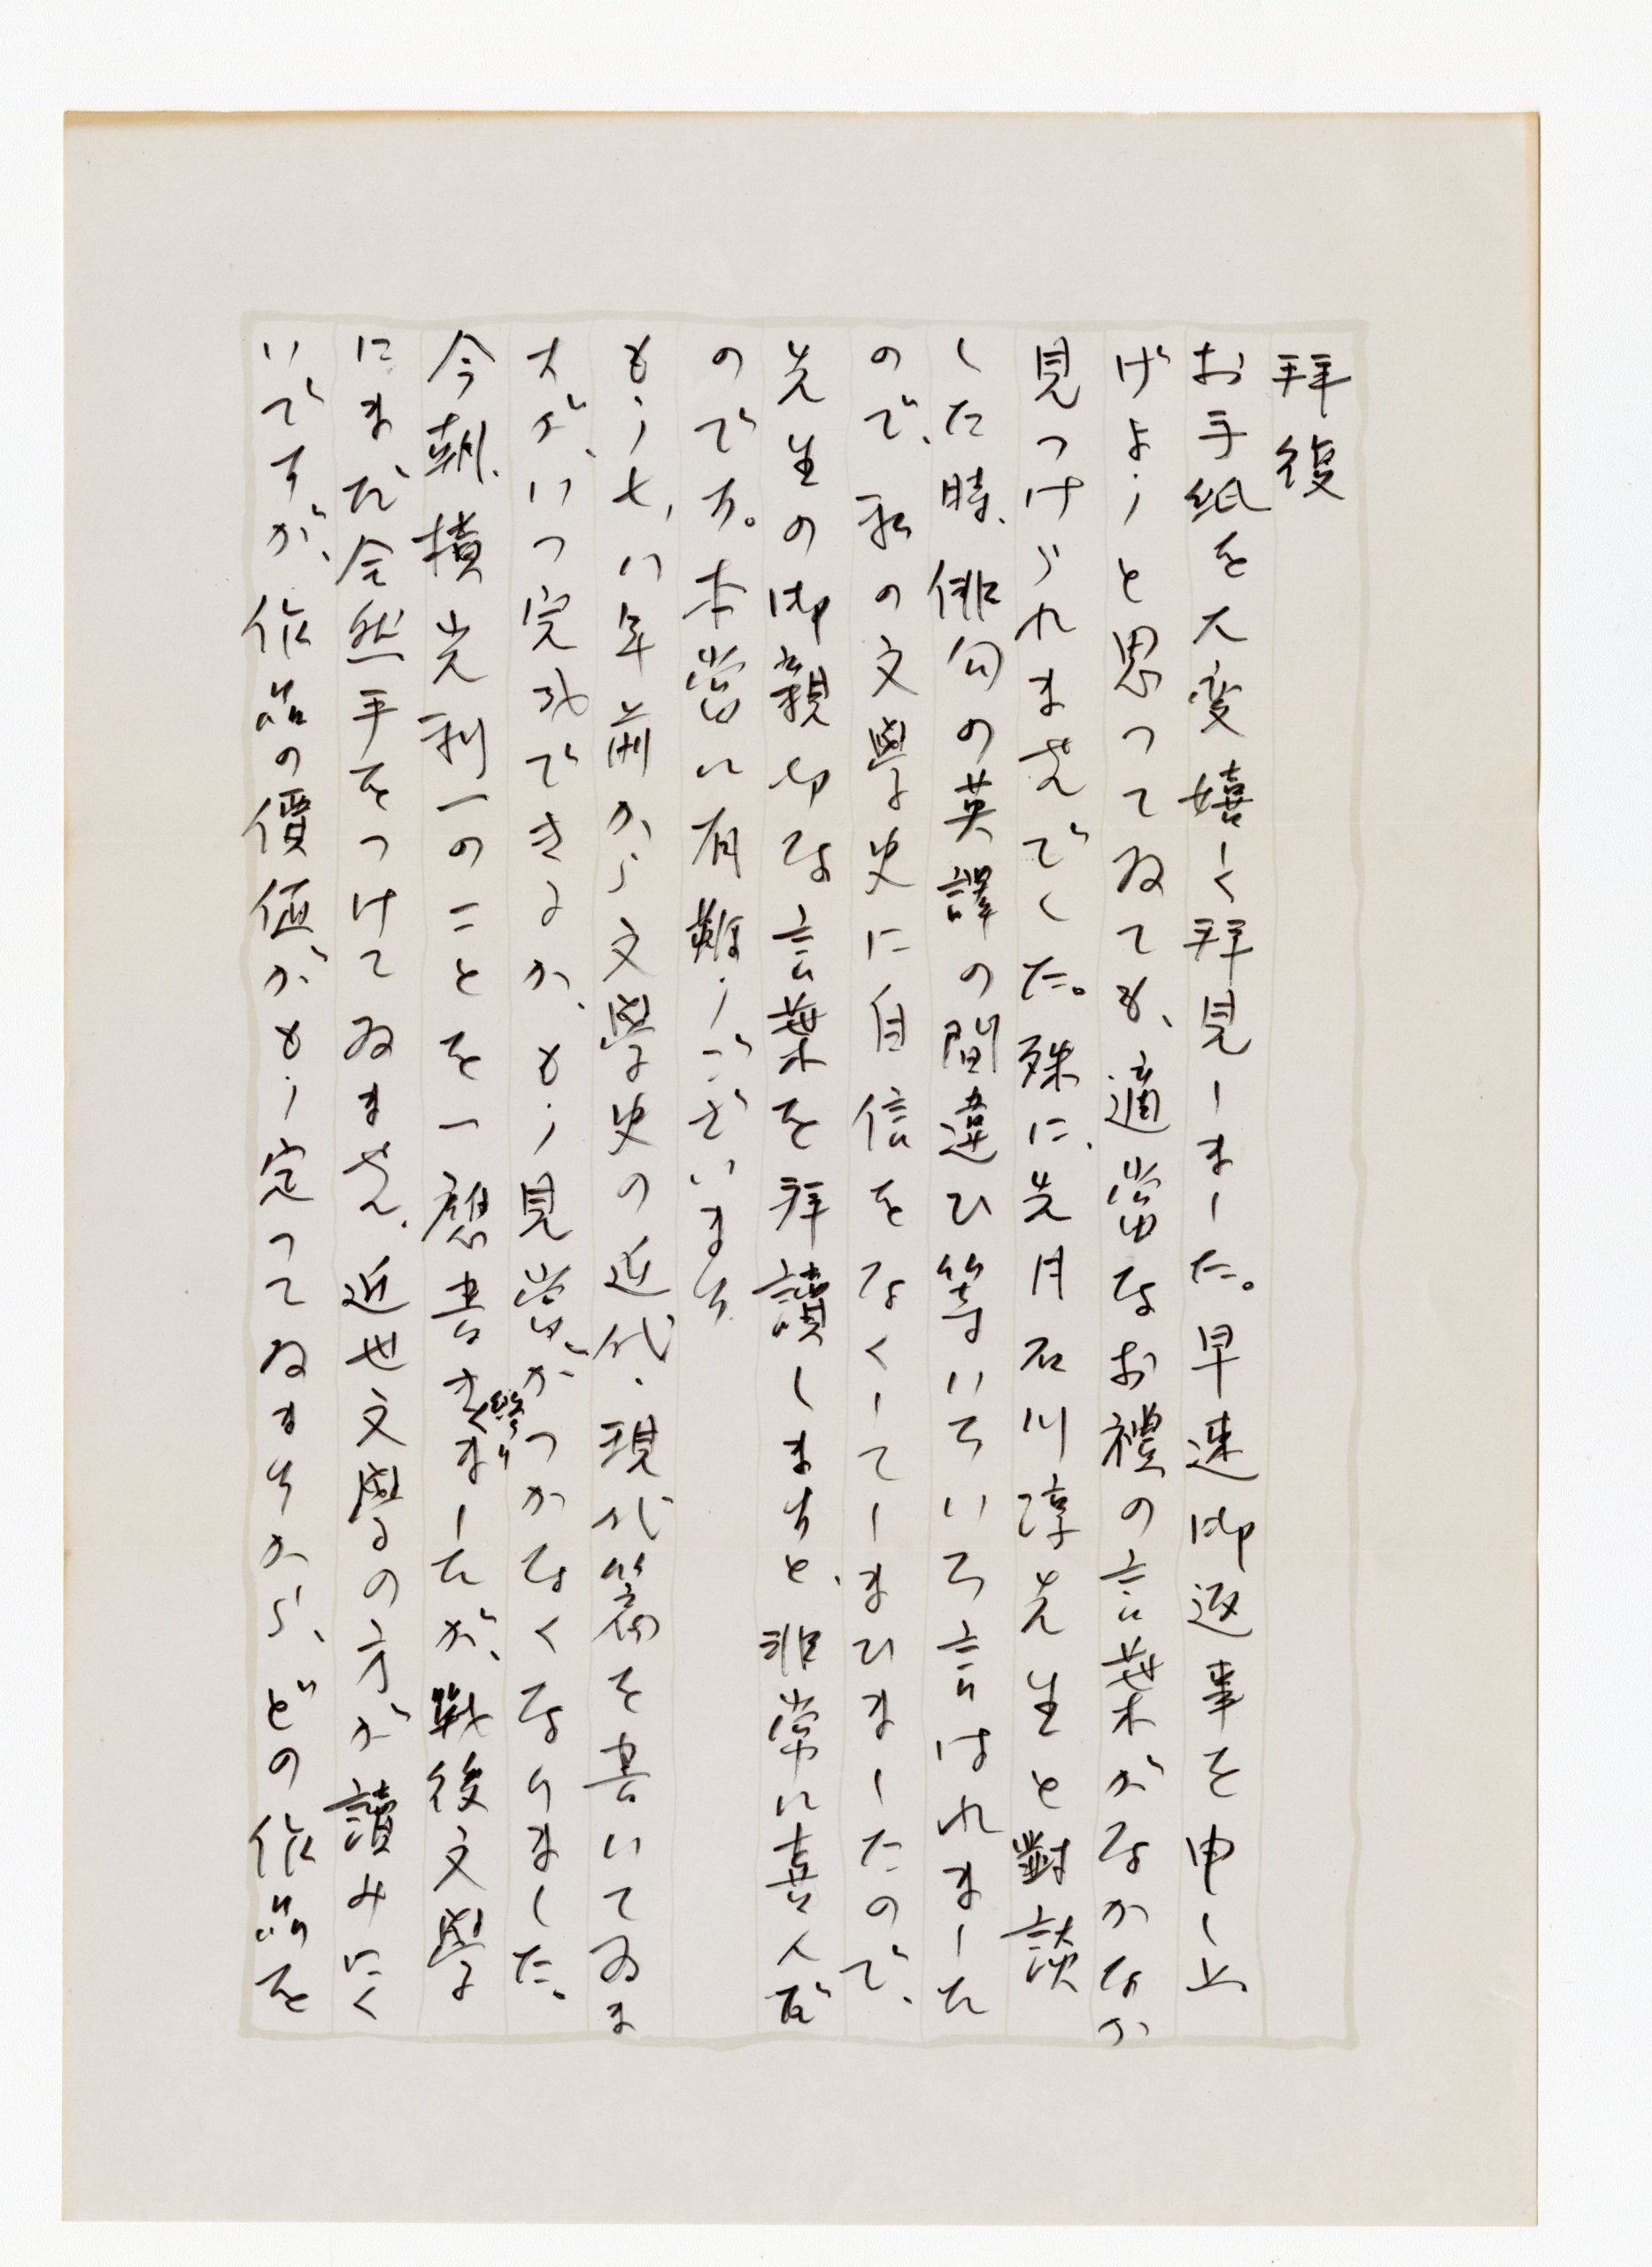 拝復
お手紙を大変嬉しく拝見しました。早速御返事を申し上
げようと思ってゐても、適當なお禮の言葉がなかなか
見つけられませんでした。殊に、先月石川淳先生と對談
した時、俳句の英譯の間違ひ等いろいろ言はれました
ので、私の文學史に自信をなくしてしまひましたので、
先生の御親切な言葉を拝讀しますと、非常に喜んだ
のです。本當に有難うございます。
もう七、八年前から文學史の近代、現代篇を書いてゐま
すが、いつ完成できるか、もう見當がつかなくなりました。
今朝、横光利一のことを一應書き終りましたが、戰後文學
にまだ全然手をつけてゐません。近世文學の方が讀みにく
いですが、作品の價値がもう定ってゐますから、どの作品を